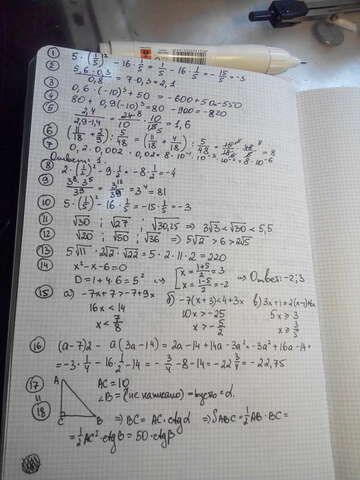 ① 5·(1/5)² - 16·1/5 = 1/5 - 16·1/5 = -15/5 = -3
② 5,6·0,3/0,8 = 7·0,3 = 2,1
③ 0,6·(-10)³ + 50 = -600 + 50 = -550
④ 80 + 0,9(-10)³ = 80 - 900 = -820
⑤ 2,4/2,9-1,4 = 24·8/10 · 10/15 = 1,6
⑥ (11/18 + 2/9) : 5/48 = (11/18 + 4/18) : 5/48 = 15/18 · 48/5 = 8
⑦ 0,2·0,002·0,02 = 8·10⁻⁶
Ответ: 1.
⑧ 2·(1/2)² - 9·1/2 = -8·1/2 = -4
⑨ 3⁸·3⁵/3⁹ = 3¹³/3⁹ = 3⁴ = 81
⑩ 5·(1/5)² - 16·1/5 = -15·1/5 = -3
⑪ √30 ; √27 ; √30,25 ⇒ 3√3 < √30 < 5,5
⑫ √20 ; √50 ; √36 ⇒ 5√2 > 6 > 2√5
⑬ 5√11·2√2·√22 = 5·2·11·2 = 220
⑭ x² - x - 6 = 0
D = 1 + 4·6 = 5² ⇒ [x = 1+5/2 = 3 x = 1-5/2 = -2 ⇒ Ответ: -2; 3
⑮ а) -7x + 7 > -7 + 9x б) -7(x+3) < 4 + 3x в) 3x + 1 ≥ 2(x-1)
16x < 14 10x > -25 5x ≥ 3
x < 7/8 x > -5/2 x ≥ 3/5
⑯ (a-7)2 - a(3a-14) = 2a - 14 + 14a - 3a² = -3a² + 16a - 14 =
= -3·1/4 - 16·1/2 - 14 = -3/4 - 8 - 14 = -22 3/4 = -22,75
⑰ A AC = 10
∠B = (не написано) = пусть = α.
⑱ C B ⇒ BC = AC·ctgα ⇒ SABC = 1/2 AB·BC =
= 1/2 AC²·ctgB = 50·ctgβ